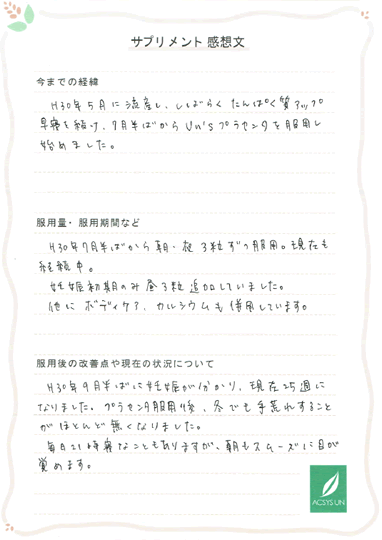 サプリメント 感想文
今までの経緯
H30年5月に流産し、しばらく たんぱく質アップ
早寝を続け、7月半ばから Un'sプラセンタを服用し
始めました。
服用量・服用期間など
H30年7月半ばから朝・夜 3粒ずつ服用。現在も
継続中。
妊娠初期のみ昼3粒追加していました。
他に ボディケア、カルシウムも 併用しています。
服用後の改善点や現在の状況について
H30年9月半ばに妊娠が分かり、現在25週に
なりました。プラセンタ服用後、冬でも手荒れすること
がほとんど無くなりました。
毎日21時寝なこともありますが、朝もスムーズに目が
覚めます。
ACSYS UN